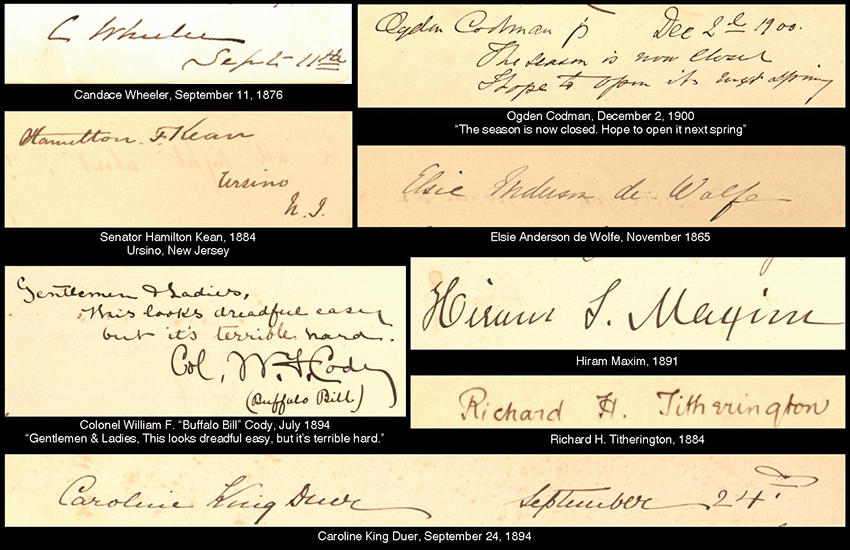 C Wheeler
Sept 11th
Candace Wheeler, September 11, 1876
Ogden Codman Jr Dec 2d 1900.
The season is now closed
I hope to open it next spring
Ogden Codman, December 2, 1900
“The season is now closed. Hope to open it next spring”
Hamilton F. Kean
Ursino
N. J.
Senator Hamilton Kean, 1884
Ursino, New Jersey
Elsie Anderson de Wolfe
Elsie Anderson de Wolfe, November 1865
Gentlemen & Ladies,
This looks dreadful easy
but it's terrible hard.
Col, W. F. Cody
(Buffalo Bill)
Colonel William F. “Buffalo Bill” Cody, July 1894
“Gentlemen & Ladies, This looks dreadful easy, but it's terrible hard.”
Hiram S. Maxim
Hiram Maxim, 1891
Richard H. Titherington
Richard H. Titherington, 1884
Caroline King Duer September 24th
Caroline King Duer, September 24, 1894